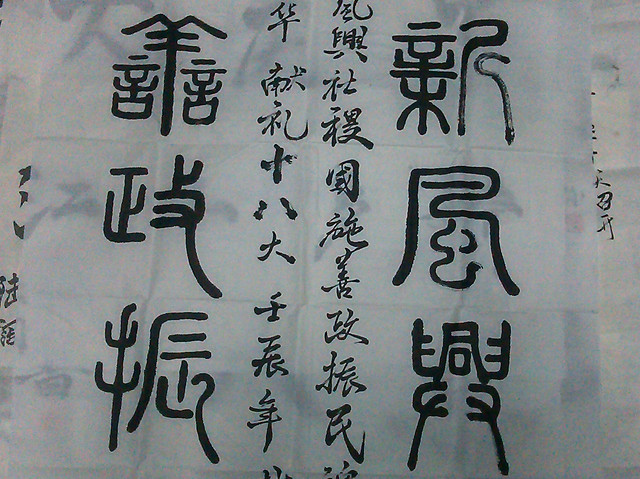 新風興
風興社稷國施善政振民
华献礼十八大壬辰年
譱政振